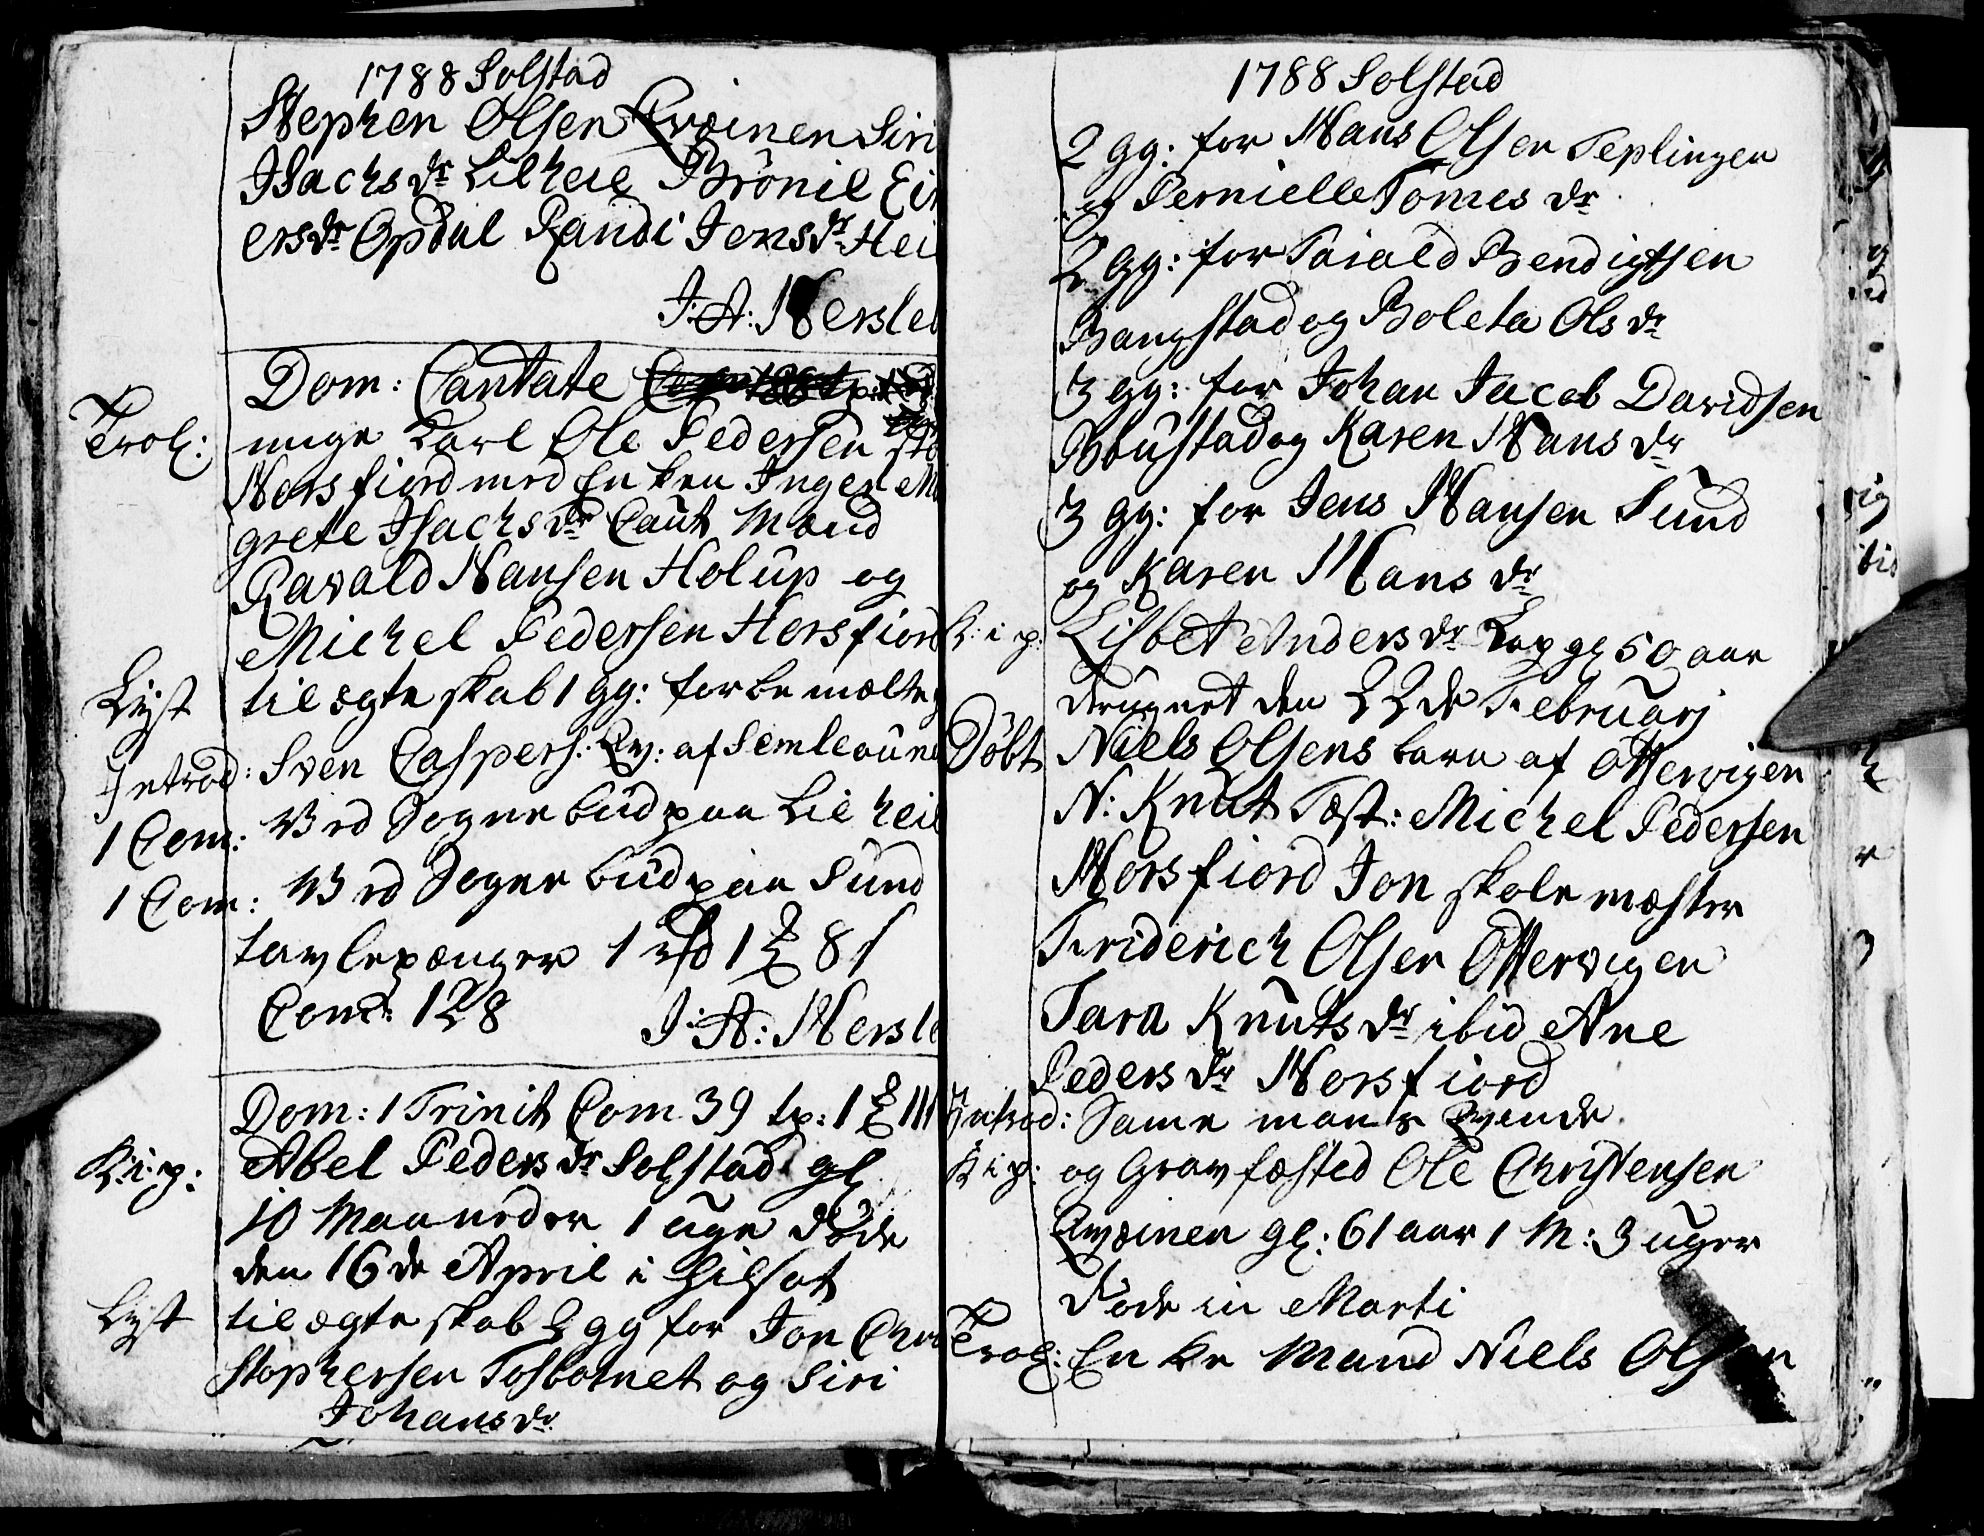 1788 Solstad
Stephen Olsen Qvæinen Siri
Isachs dr Lilheil Brönil Ein
ersdr Opdal Randi Jens dr Hei
J: A: Hersleb
Dom: Cantate
Trol: unge Karl Ole Pedersen
Horsfiord med Enken Inger Ma
grete Isachs dr Caut Mænd
Ravald Hansen Holup og
Michel Pedersen Horsfiord
Lyst til ægteskab 1 gg: forbemælte
Introd: Sven Caspers: Qv: af Semleaune
1 Com: Ved Sognebud paa Lilheil
1 Com: Ved Sognebud paa Sund
tavlepænger 1 rd 1 ℥ 8 s
Com: 128
J: A: Hersleb
Dom: 1 Trinit Com 39 tp: 1 ℥ 111
K: i: p: Abel Peders dr Solstad gl
10 Maaneder 1 uge døde
den 16de April i
Lyst til ægteskab 2 gg for Jon Chri
stophersen Tosbotnet og Siri
Johans dr
1788 Solstad
2 gg: for Hans Olsen Teplingen
og Pernielle Tomes dr
2 gg: for Taiald Bendigtsen
Bangstad og Boleta Ols dr
3 gg: for Johan Jacob Davidsen
Boustad og Karen Hans dr
3 gg: for Jens Hansen Sund
og Karen Hans dr
K: i p: Lisbet Anders dr Lap gl 50 aar
druknet den 22de Februarj
Döbt Niels Olsens barn af Ottervigen
N: Knut Test: Michel Pedersen
Horsfiord Jon skolemæster
Friderich Olsen Ottervigen
Tara Knuts dr ibid Ane
Peders dr Horsfiord
Introd: Same mands Qvinde
K i p: og Gravfæsted Ole Christensen
Qvæinen gl: 61 aar 1 M: 3 uger
døde in Marti
Trol: Enke Mand Niels Olsen